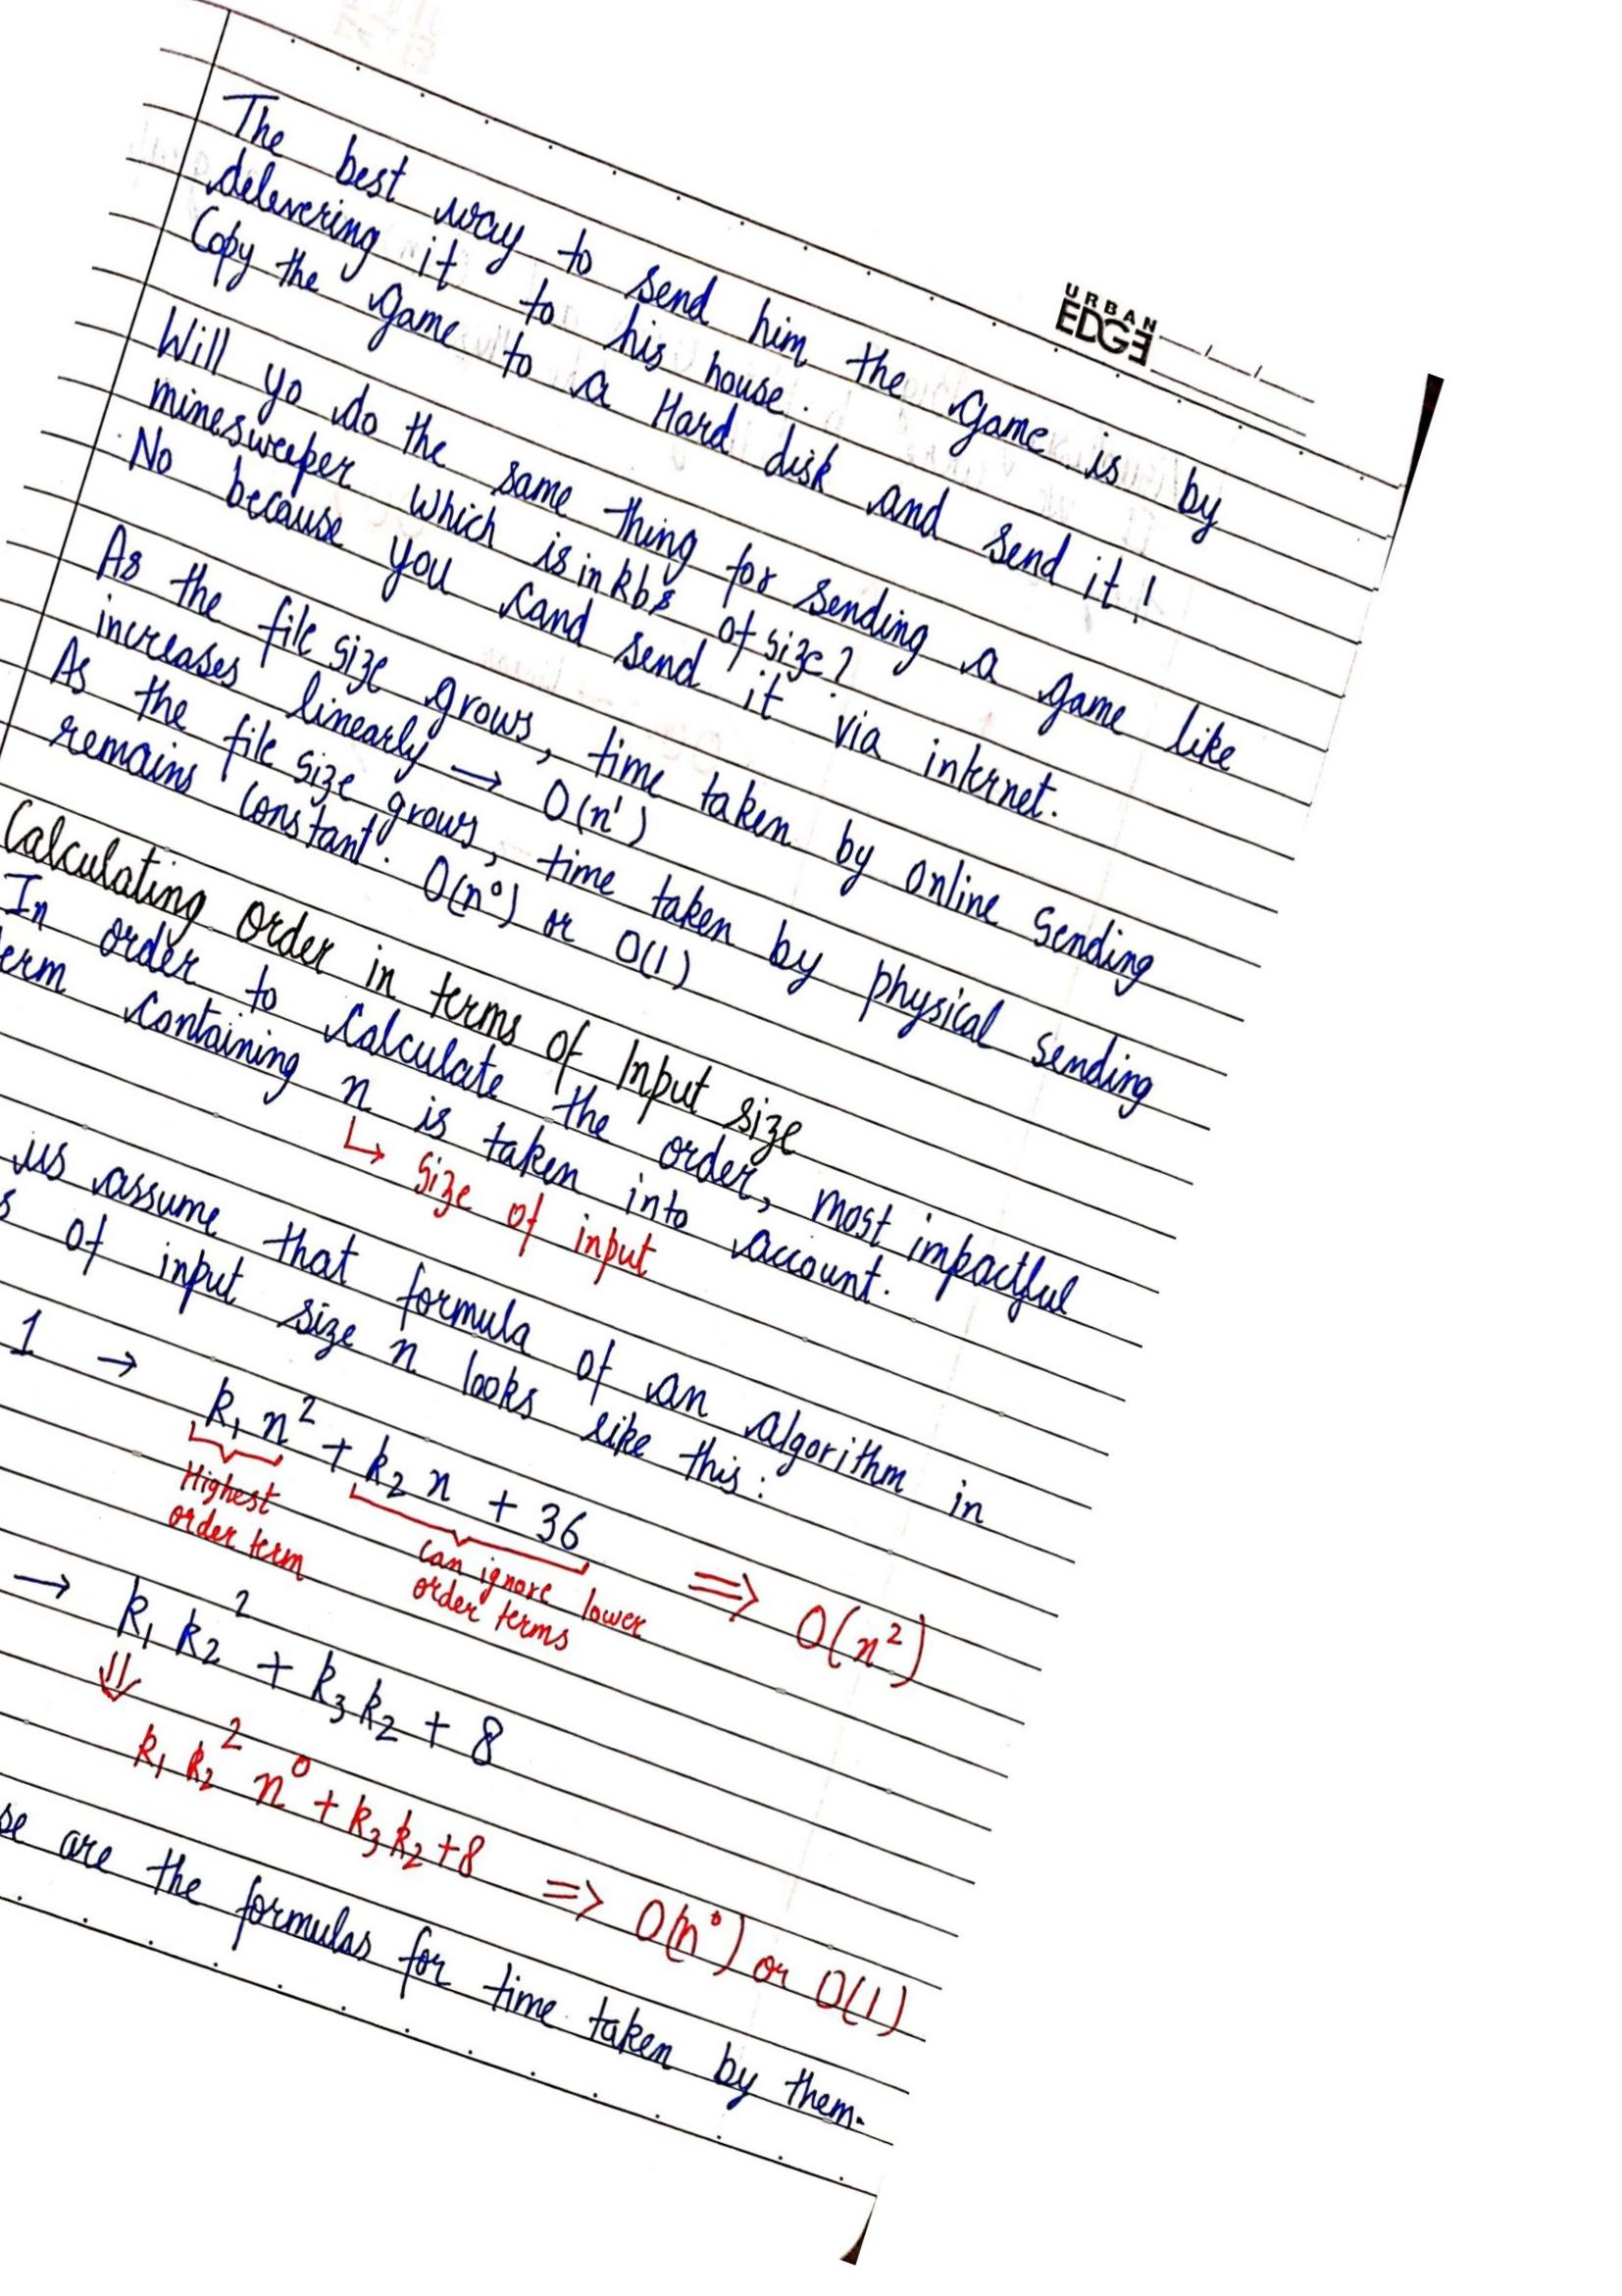 URBAN
EDGE
The best way to send him the game is by
delevering it to his house.
Copy the game to a Hard disk and send it!
Will yo do the same thing for sending a game like
minesweeper which is in kbs of size?
No because you cand send it via internet.
As the file size grows, time taken by online sending
increases linearly → O(n¹)
As the file size grows, time taken by physical sending
remains constant. O(n⁰) or O(1)
Calculating order in terms of Input size
In order to calculate the order, most impactful
erm containing n is taken into account.
↳ size of input
us assume that formula of an algorithm in
s of input size n looks like this:
1 → k₁n² + k₂n + 36 ⇒ O(n²)
Highest
order term
can ignore lower
order terms
→ k₁k₂² + k₃k₂ + 8
⇓
k₁k₂²n⁰ + k₃k₂+8 ⇒ O(n⁰) or O(1)
se are the formulas for time taken by them.